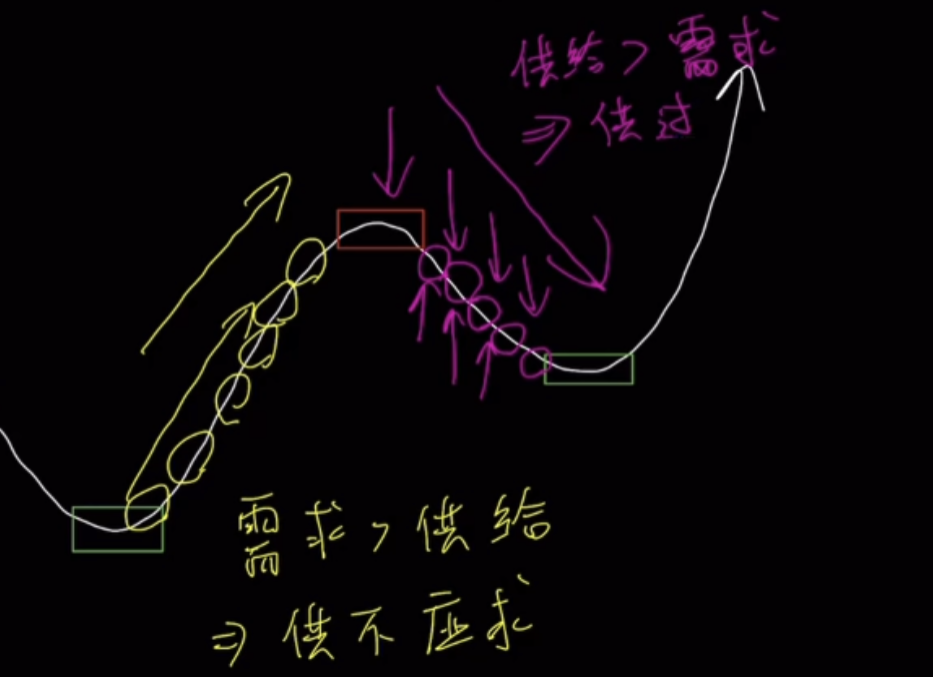 供给>需求
⇒供过
需求>供给
⇒供不应求